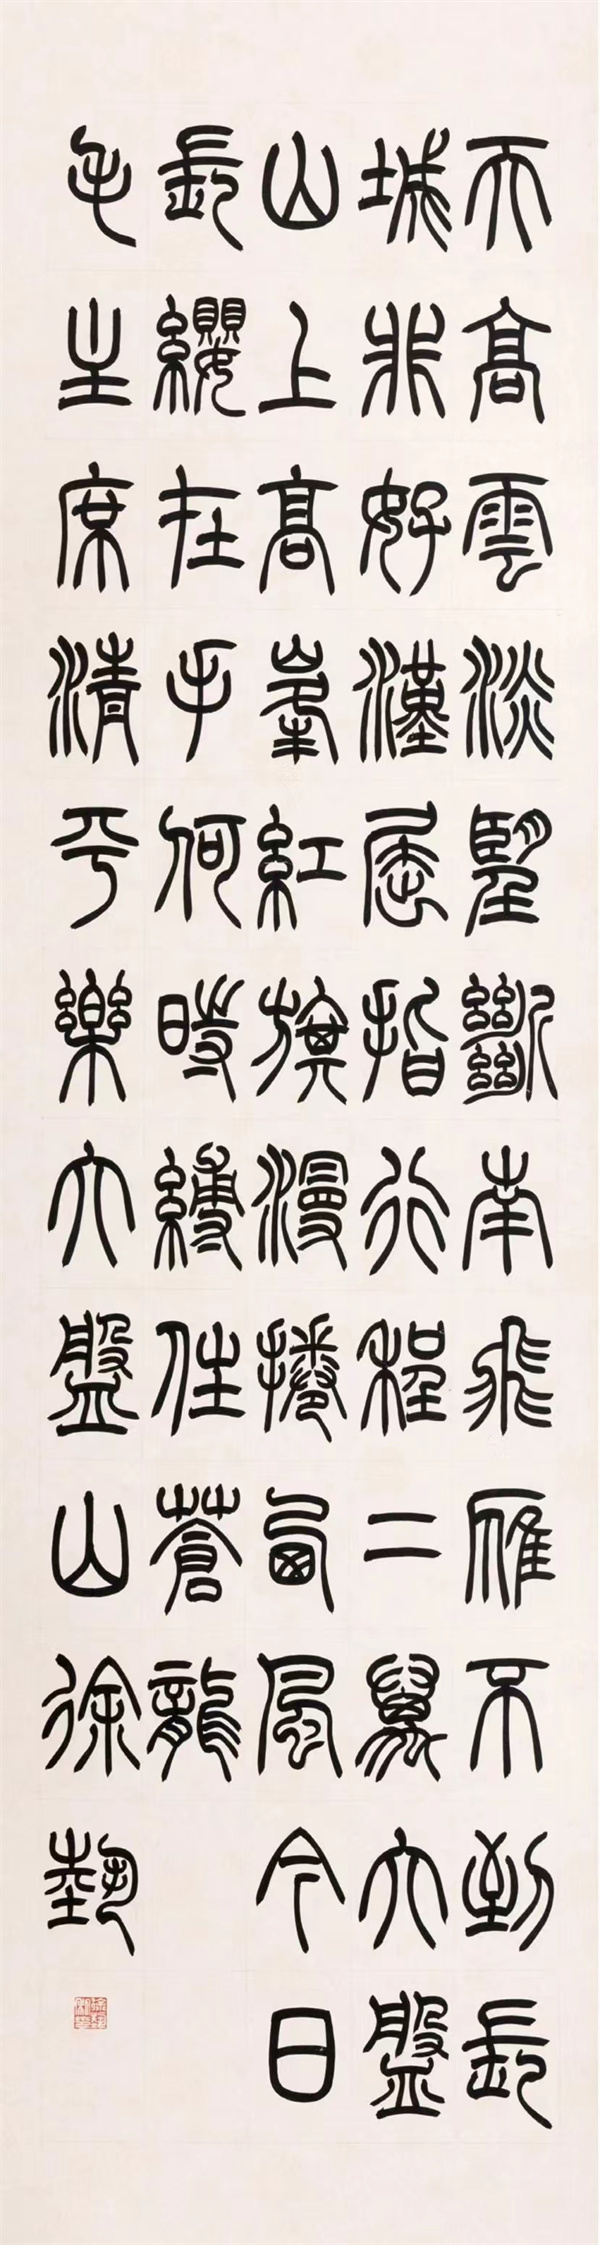 天高雲淡望斷南飛雁不到長
城非好漢屈指行程二萬六盤
山上高峯紅旗漫捲西風今日
長纓在手何時縛住蒼龍
毛主席清平樂六盤山徐